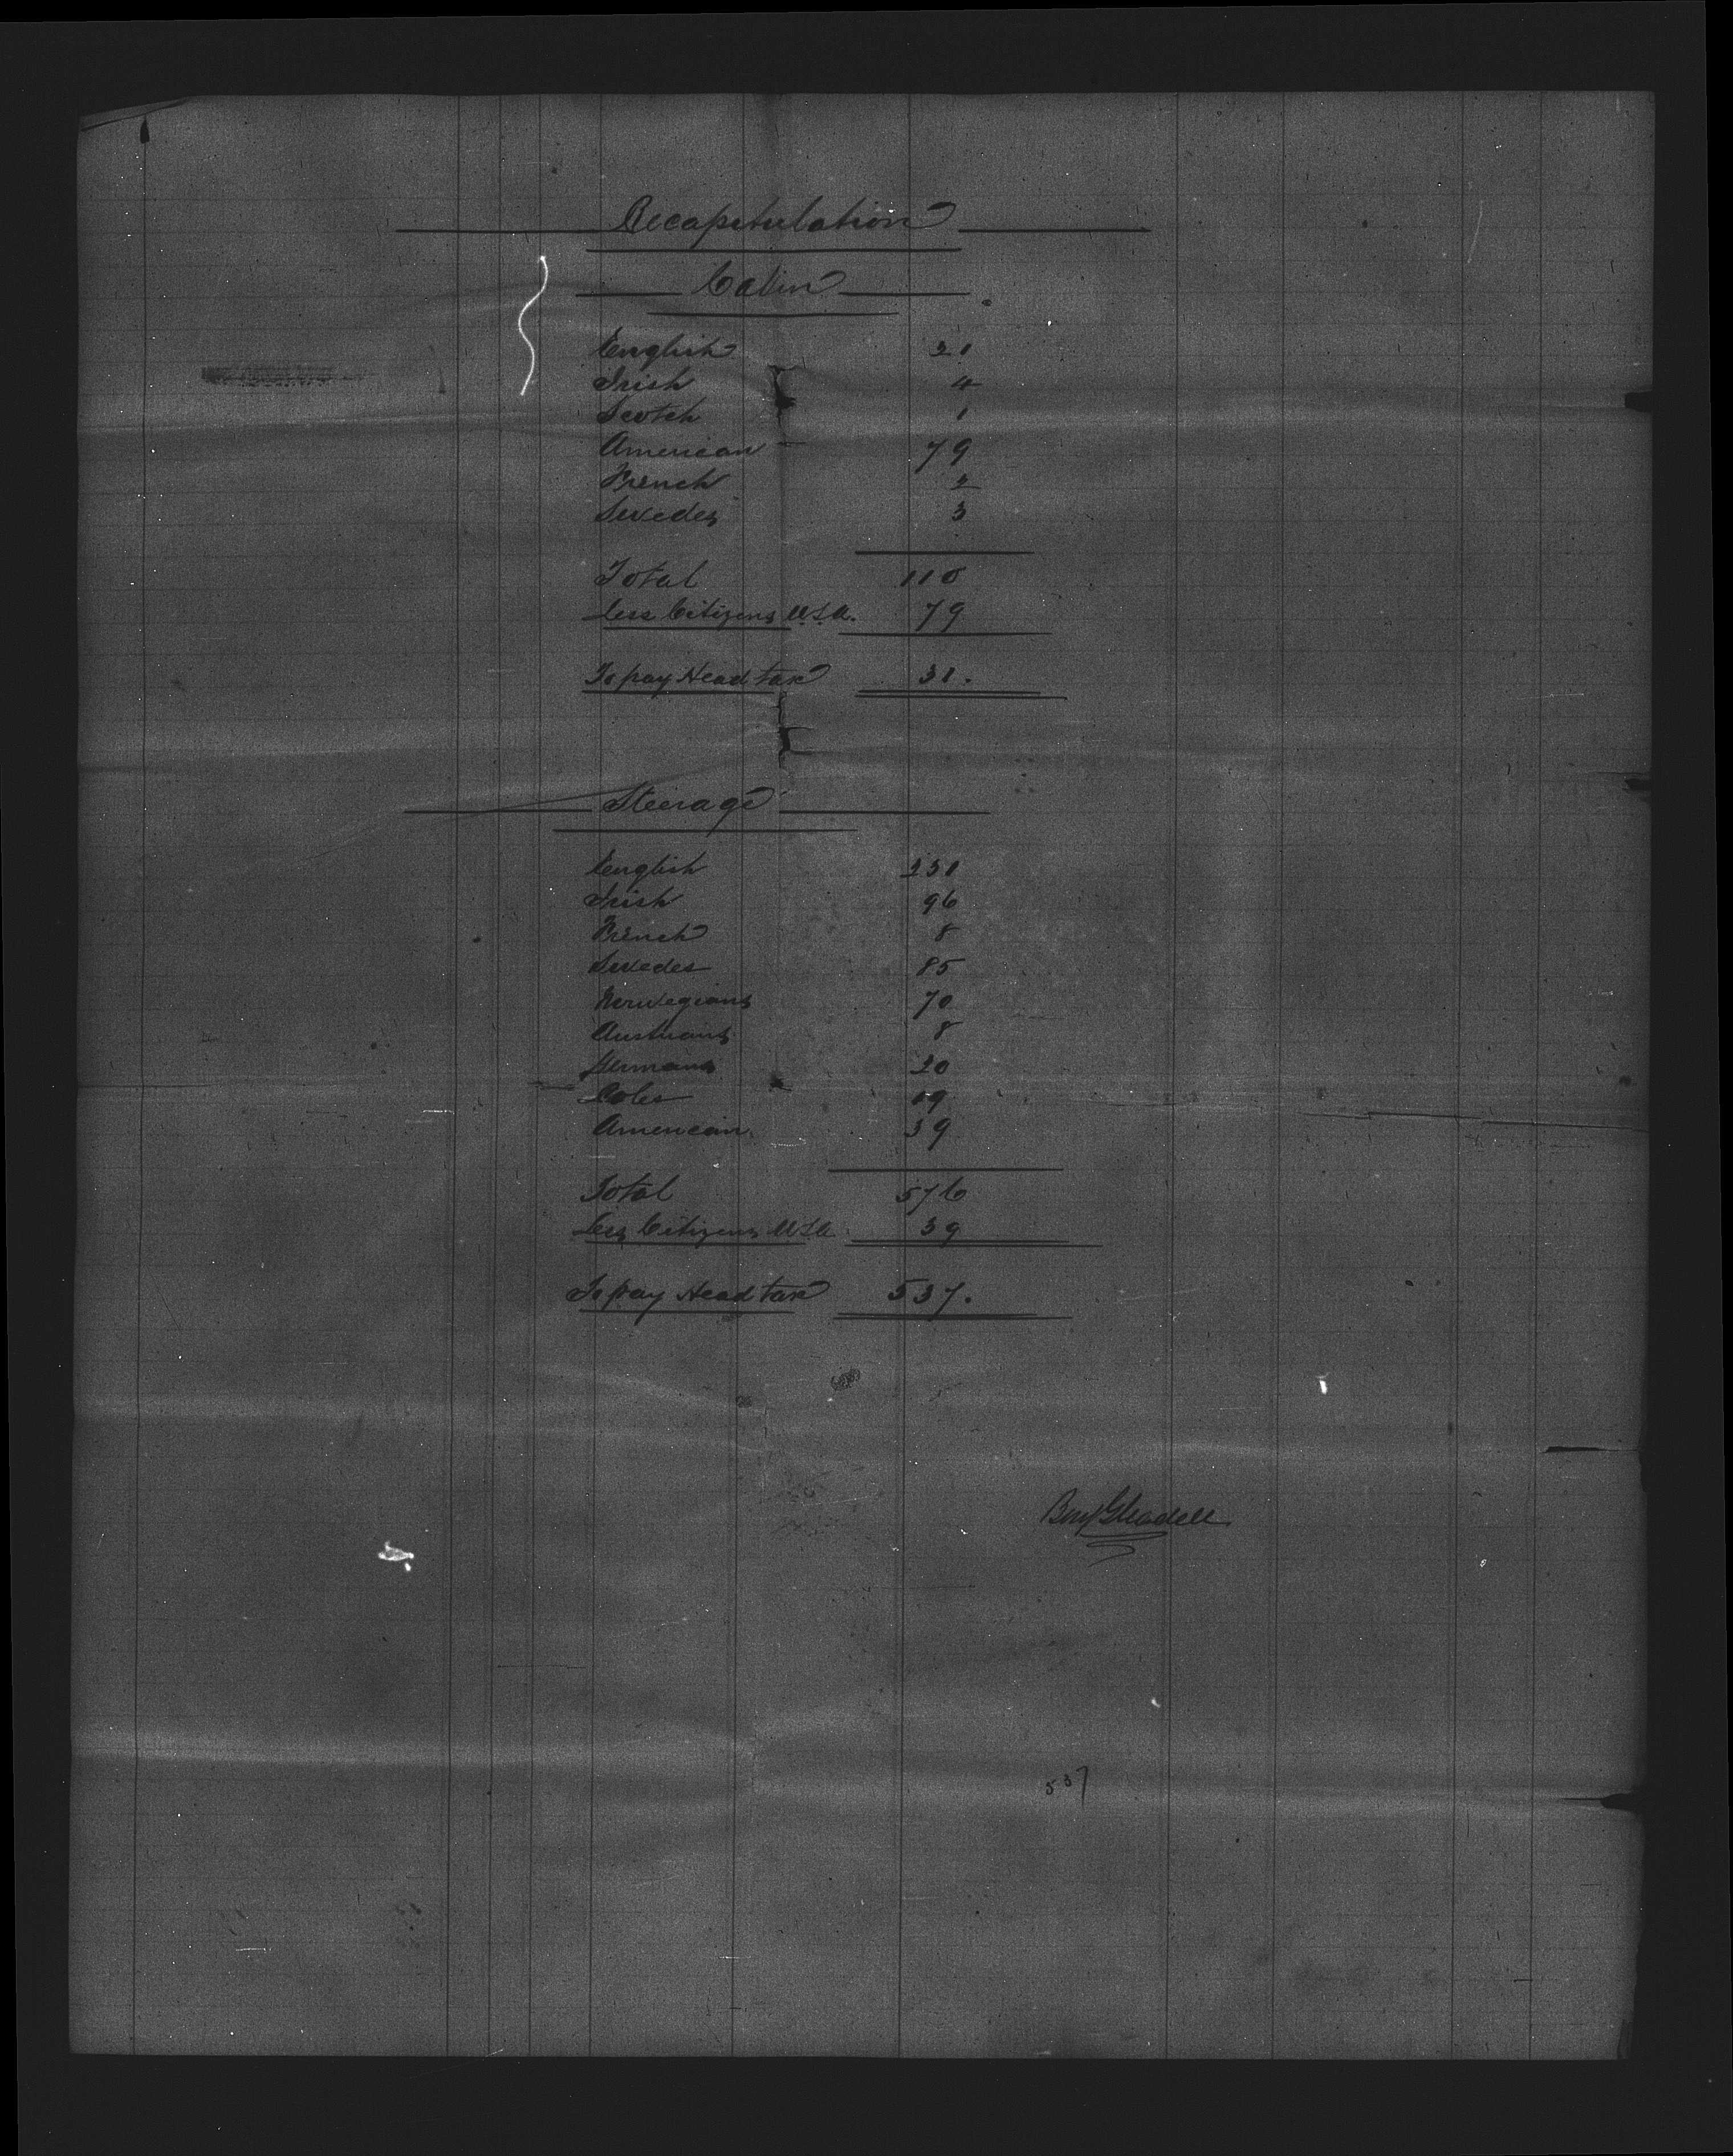 Recapitulation
Cabin
English 21
Irish 4
Scotch 1
American 79
French 2
Swedes 3
Total 110
Less Citizens U.S.A. 79
To pay Head tax 31.
Steerage
English 231
Irish 96
French 8
Swedes 85
Norwegians 70
Austrians 8
Germans 20
Poles 19
American 39
Total 576
Less Citizens U.S.A. 39
To pay Head tax 537.
Benj Gleadell
537